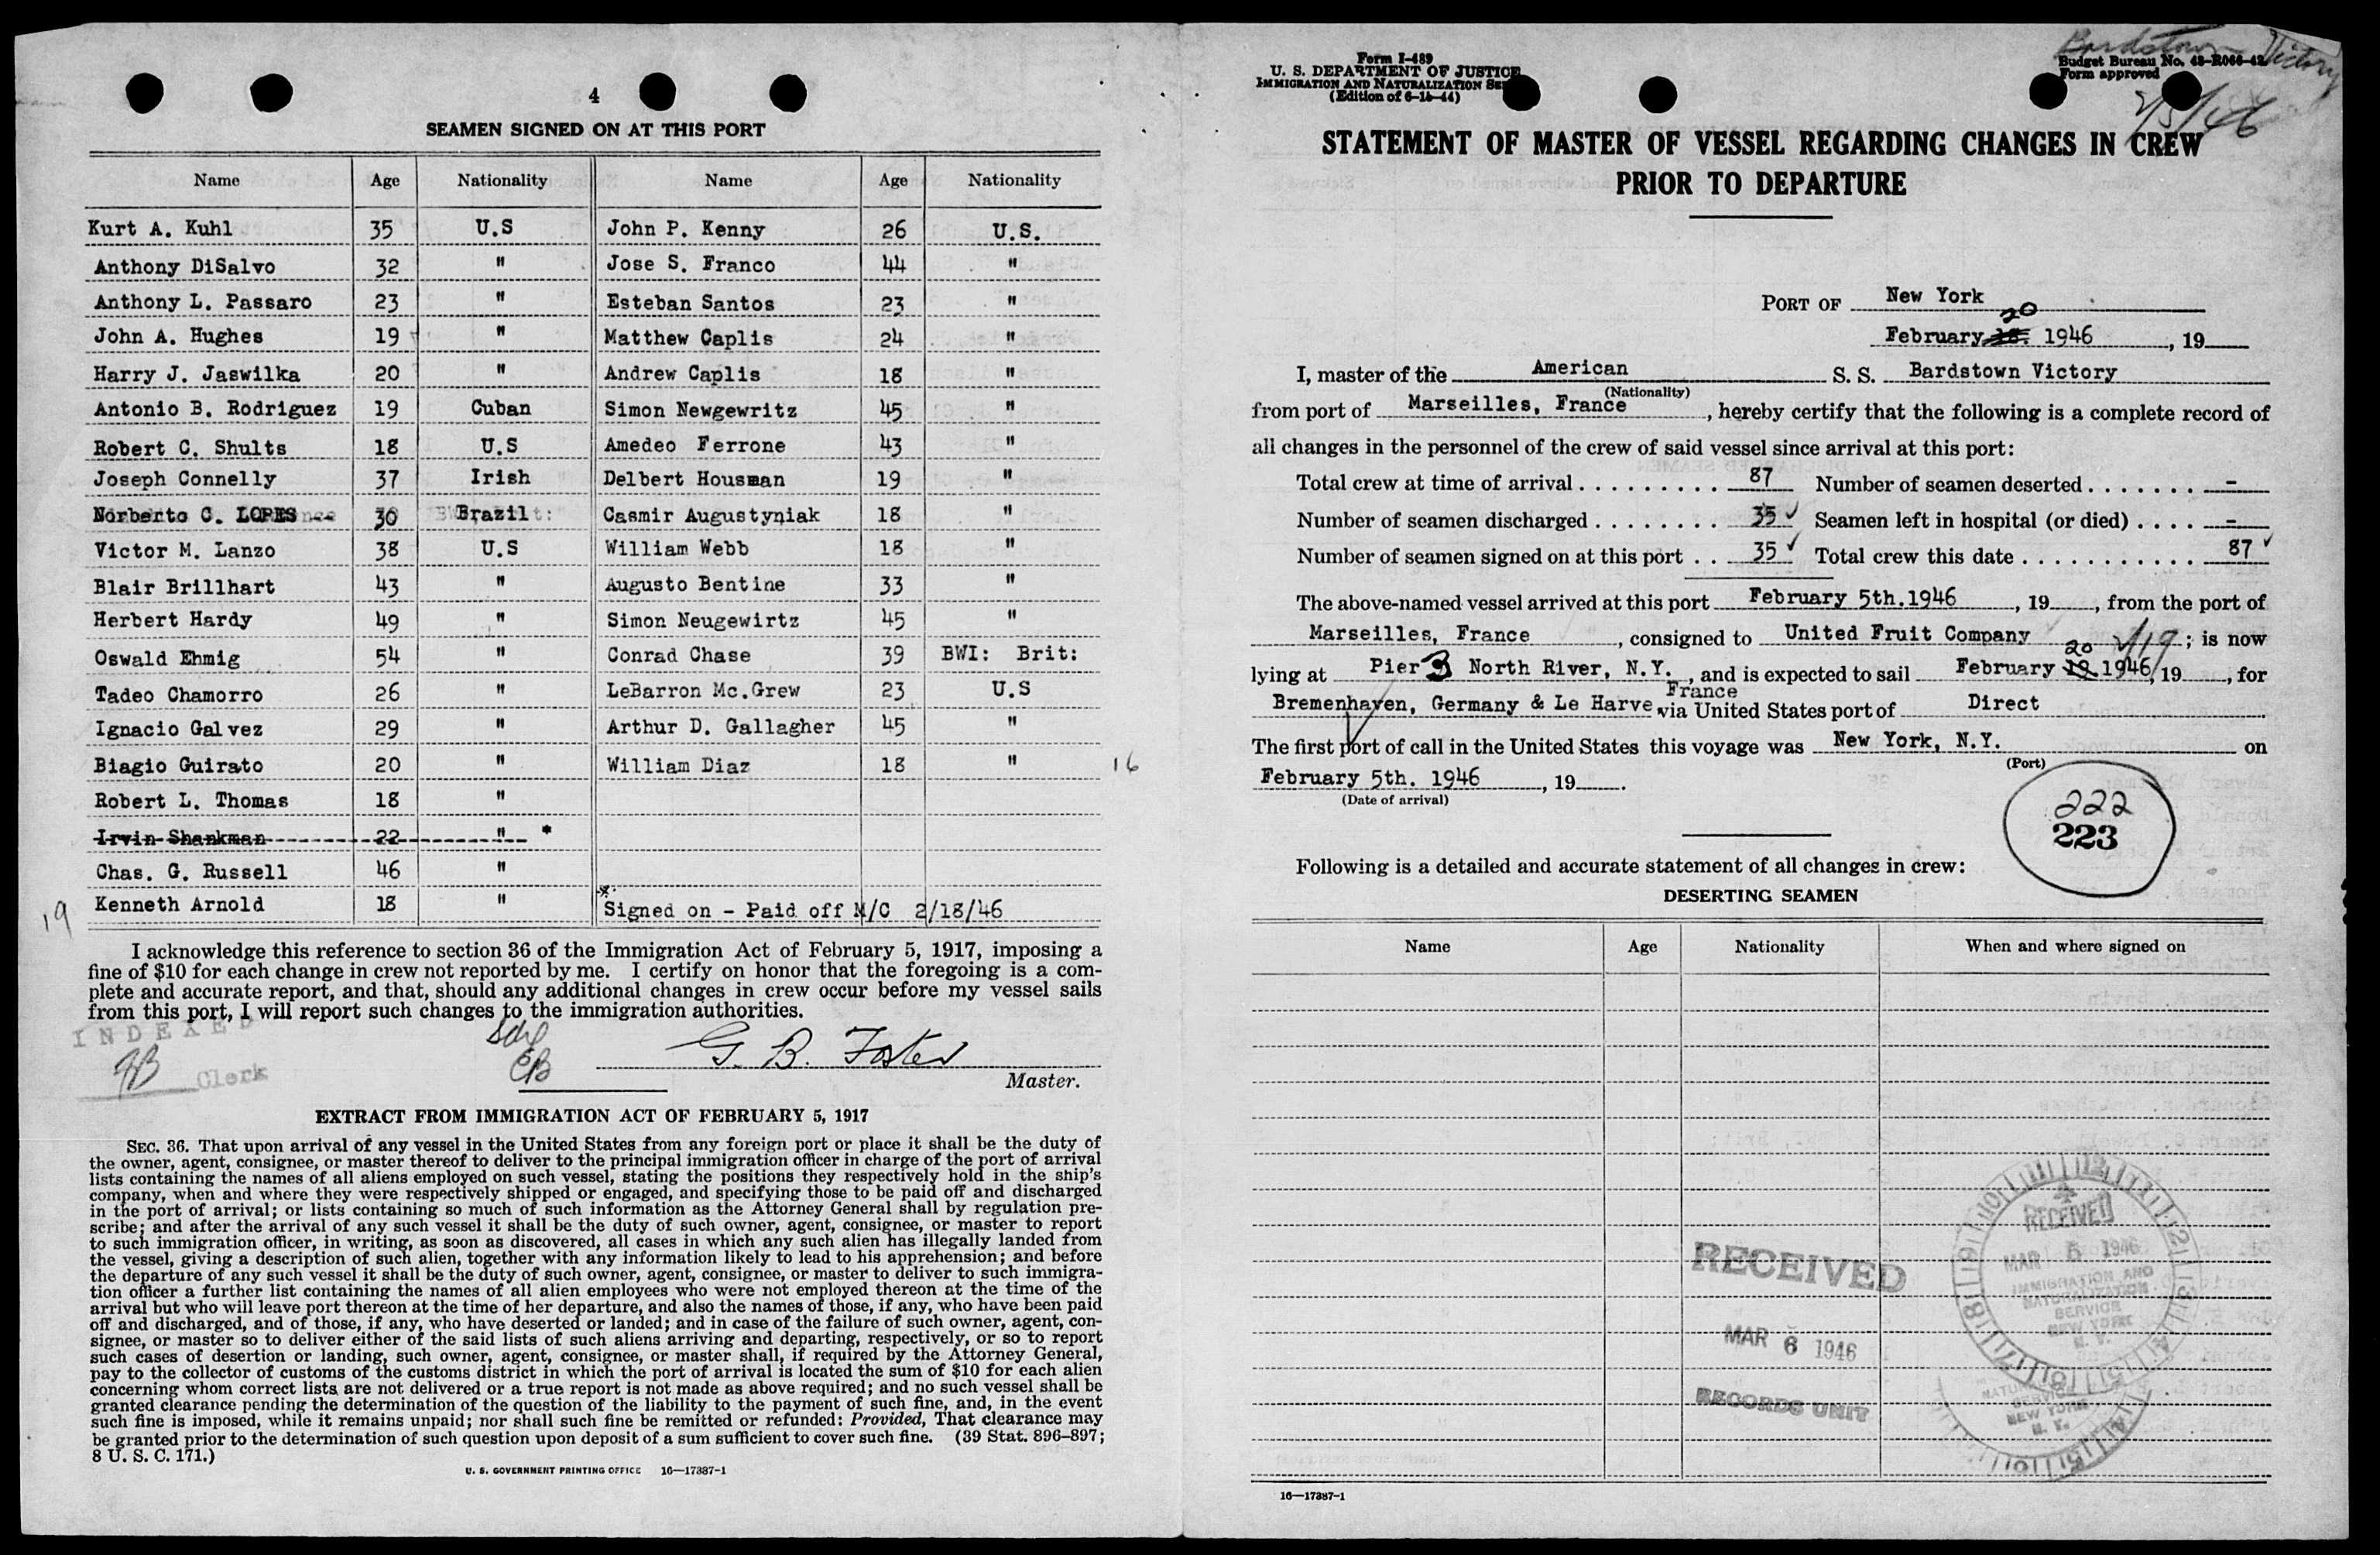 4
SEAMEN SIGNED ON AT THIS PORT
Name Age Nationality Name Age Nationality
Kurt A. Kuhl 35 U.S John P. Kenny 26 U.S.
Anthony DiSalvo 32 " Jose S. Franco 44 "
Anthony L. Passaro 23 " Esteban Santos 23 "
John A. Hughes 19 " Matthew Caplis 24 "
Harry J. Jaswilka 20 " Andrew Caplis 18 "
Antonio B. Rodriguez 19 Cuban Simon Newgewritz 45 "
Robert C. Shults 18 U.S Amedeo Ferrone 43 "
Joseph Connelly 37 Irish Delbert Housman 19 "
Norberto C. LOPES 30 Brazil Casmir Augustyniak 18 "
Victor M. Lanzo 38 U.S William Webb 18 "
Blair Brillhart 43 " Augusto Bentine 33 "
Herbert Hardy 49 " Simon Neugewirtz 45 "
Oswald Ehmig 54 " Conrad Chase 39 BWI: Brit:
Tadeo Chamorro 26 " LeBarron Mc.Grew 23 U.S
Ignacio Galvez 29 " Arthur D. Gallagher 45 "
Biagio Guirato 20 " William Diaz 18 " 16
Robert L. Thomas 18 "
Irvin Shankman 22 " *
Chas. G. Russell 46 "
19 Kenneth Arnold 18 " * Signed on - Paid off M/C 2/18/46
I acknowledge this reference to section 36 of the Immigration Act of February 5, 1917, imposing a
fine of $10 for each change in crew not reported by me. I certify on honor that the foregoing is a com-
plete and accurate report, and that, should any additional changes in crew occur before my vessel sails
from this port, I will report such changes to the immigration authorities.
INDEXED
G. B. Foster
Clerk
Master.
EXTRACT FROM IMMIGRATION ACT OF FEBRUARY 5, 1917
SEC. 36. That upon arrival of any vessel in the United States from any foreign port or place it shall be the duty of
the owner, agent, consignee, or master thereof to deliver to the principal immigration officer in charge of the port of arrival
lists containing the names of all aliens employed on such vessel, stating the positions they respectively hold in the ship's
company, when and where they were respectively shipped or engaged, and specifying those to be paid off and discharged
in the port of arrival; or lists containing so much of such information as the Attorney General shall by regulation pre-
scribe; and after the arrival of any such vessel it shall be the duty of such owner, agent, consignee, or master to report
to such immigration officer, in writing, as soon as discovered, all cases in which any such alien has illegally landed from
the vessel, giving a description of such alien, together with any information likely to lead to his apprehension; and before
the departure of any such vessel it shall be the duty of such owner, agent, consignee, or master to deliver to such immigra-
tion officer a further list containing the names of all alien employees who were not employed thereon at the time of the
arrival but who will leave port thereon at the time of her departure, and also the names of those, if any, who have been paid
off and discharged, and of those, if any, who have deserted or landed; and in case of the failure of such owner, agent, con-
signee, or master so to deliver either of the said lists of such aliens arriving and departing, respectively, or so to report
such cases of desertion or landing, such owner, agent, consignee, or master shall, if required by the Attorney General,
pay to the collector of customs of the customs district in which the port of arrival is located the sum of $10 for each alien
concerning whom correct lists are not delivered or a true report is not made as above required; and no such vessel shall be
granted clearance pending the determination of the question of the liability to the payment of such fine, and, in the event
such fine is imposed, while it remains unpaid; nor shall such fine be remitted or refunded: Provided, That clearance may
be granted prior to the determination of such question upon deposit of a sum sufficient to cover such fine. (39 Stat. 896–897;
8 U. S. C. 171.)
U. S. GOVERNMENT PRINTING OFFICE 16—17387-1
Form I-489
U. S. DEPARTMENT OF JUSTICE
IMMIGRATION AND NATURALIZATION
(Edition of 6-15-44)
Bardstown Victory
Budget Bureau No. 43-R066-42
Form approved
2/5/46
STATEMENT OF MASTER OF VESSEL REGARDING CHANGES IN CREW
PRIOR TO DEPARTURE
PORT OF New York
February 20 1946, 19
I, master of the American S. S. Bardstown Victory
(Nationality)
from port of Marseilles, France, hereby certify that the following is a complete record of
all changes in the personnel of the crew of said vessel since arrival at this port:
Total crew at time of arrival 87 Number of seamen deserted -
Number of seamen discharged 35 Seamen left in hospital (or died) -
Number of seamen signed on at this port 35 Total crew this date 87
The above-named vessel arrived at this port February 5th.1946, 19, from the port of
Marseilles, France, consigned to United Fruit Company 2/19; is now
lying at Pier 3 North River, N.Y., and is expected to sail February 20 19 1946, 19, for
Bremenhaven, Germany & Le Harve France via United States port of Direct
The first port of call in the United States this voyage was New York, N.Y. on
(Port)
February 5th. 1946, 19.
(Date of arrival)
222
223
Following is a detailed and accurate statement of all changes in crew:
DESERTING SEAMEN
Name Age Nationality When and where signed on
RECEIVED
MAR 6 1946
RECORDS UNIT
RECEIVED
MAR 6 1946
IMMIGRATION AND
NATURALIZATION
SERVICE
NEW YORK
N. Y.
NEW YORK
N. Y.
16—17387-1